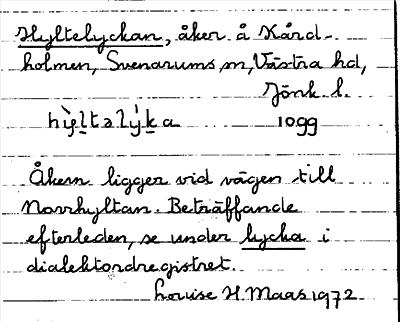 Hyltelyckan, åker å Kård-
holmen, Svenarums sn, Västra hd,
Jönk. l.
hỳltalýka 1099
Åkern ligger vid vägen till
Norrhyltan. Beträffande
efterleden, se under lycka i
dialektordregistret.
Louise H. Maas 1972